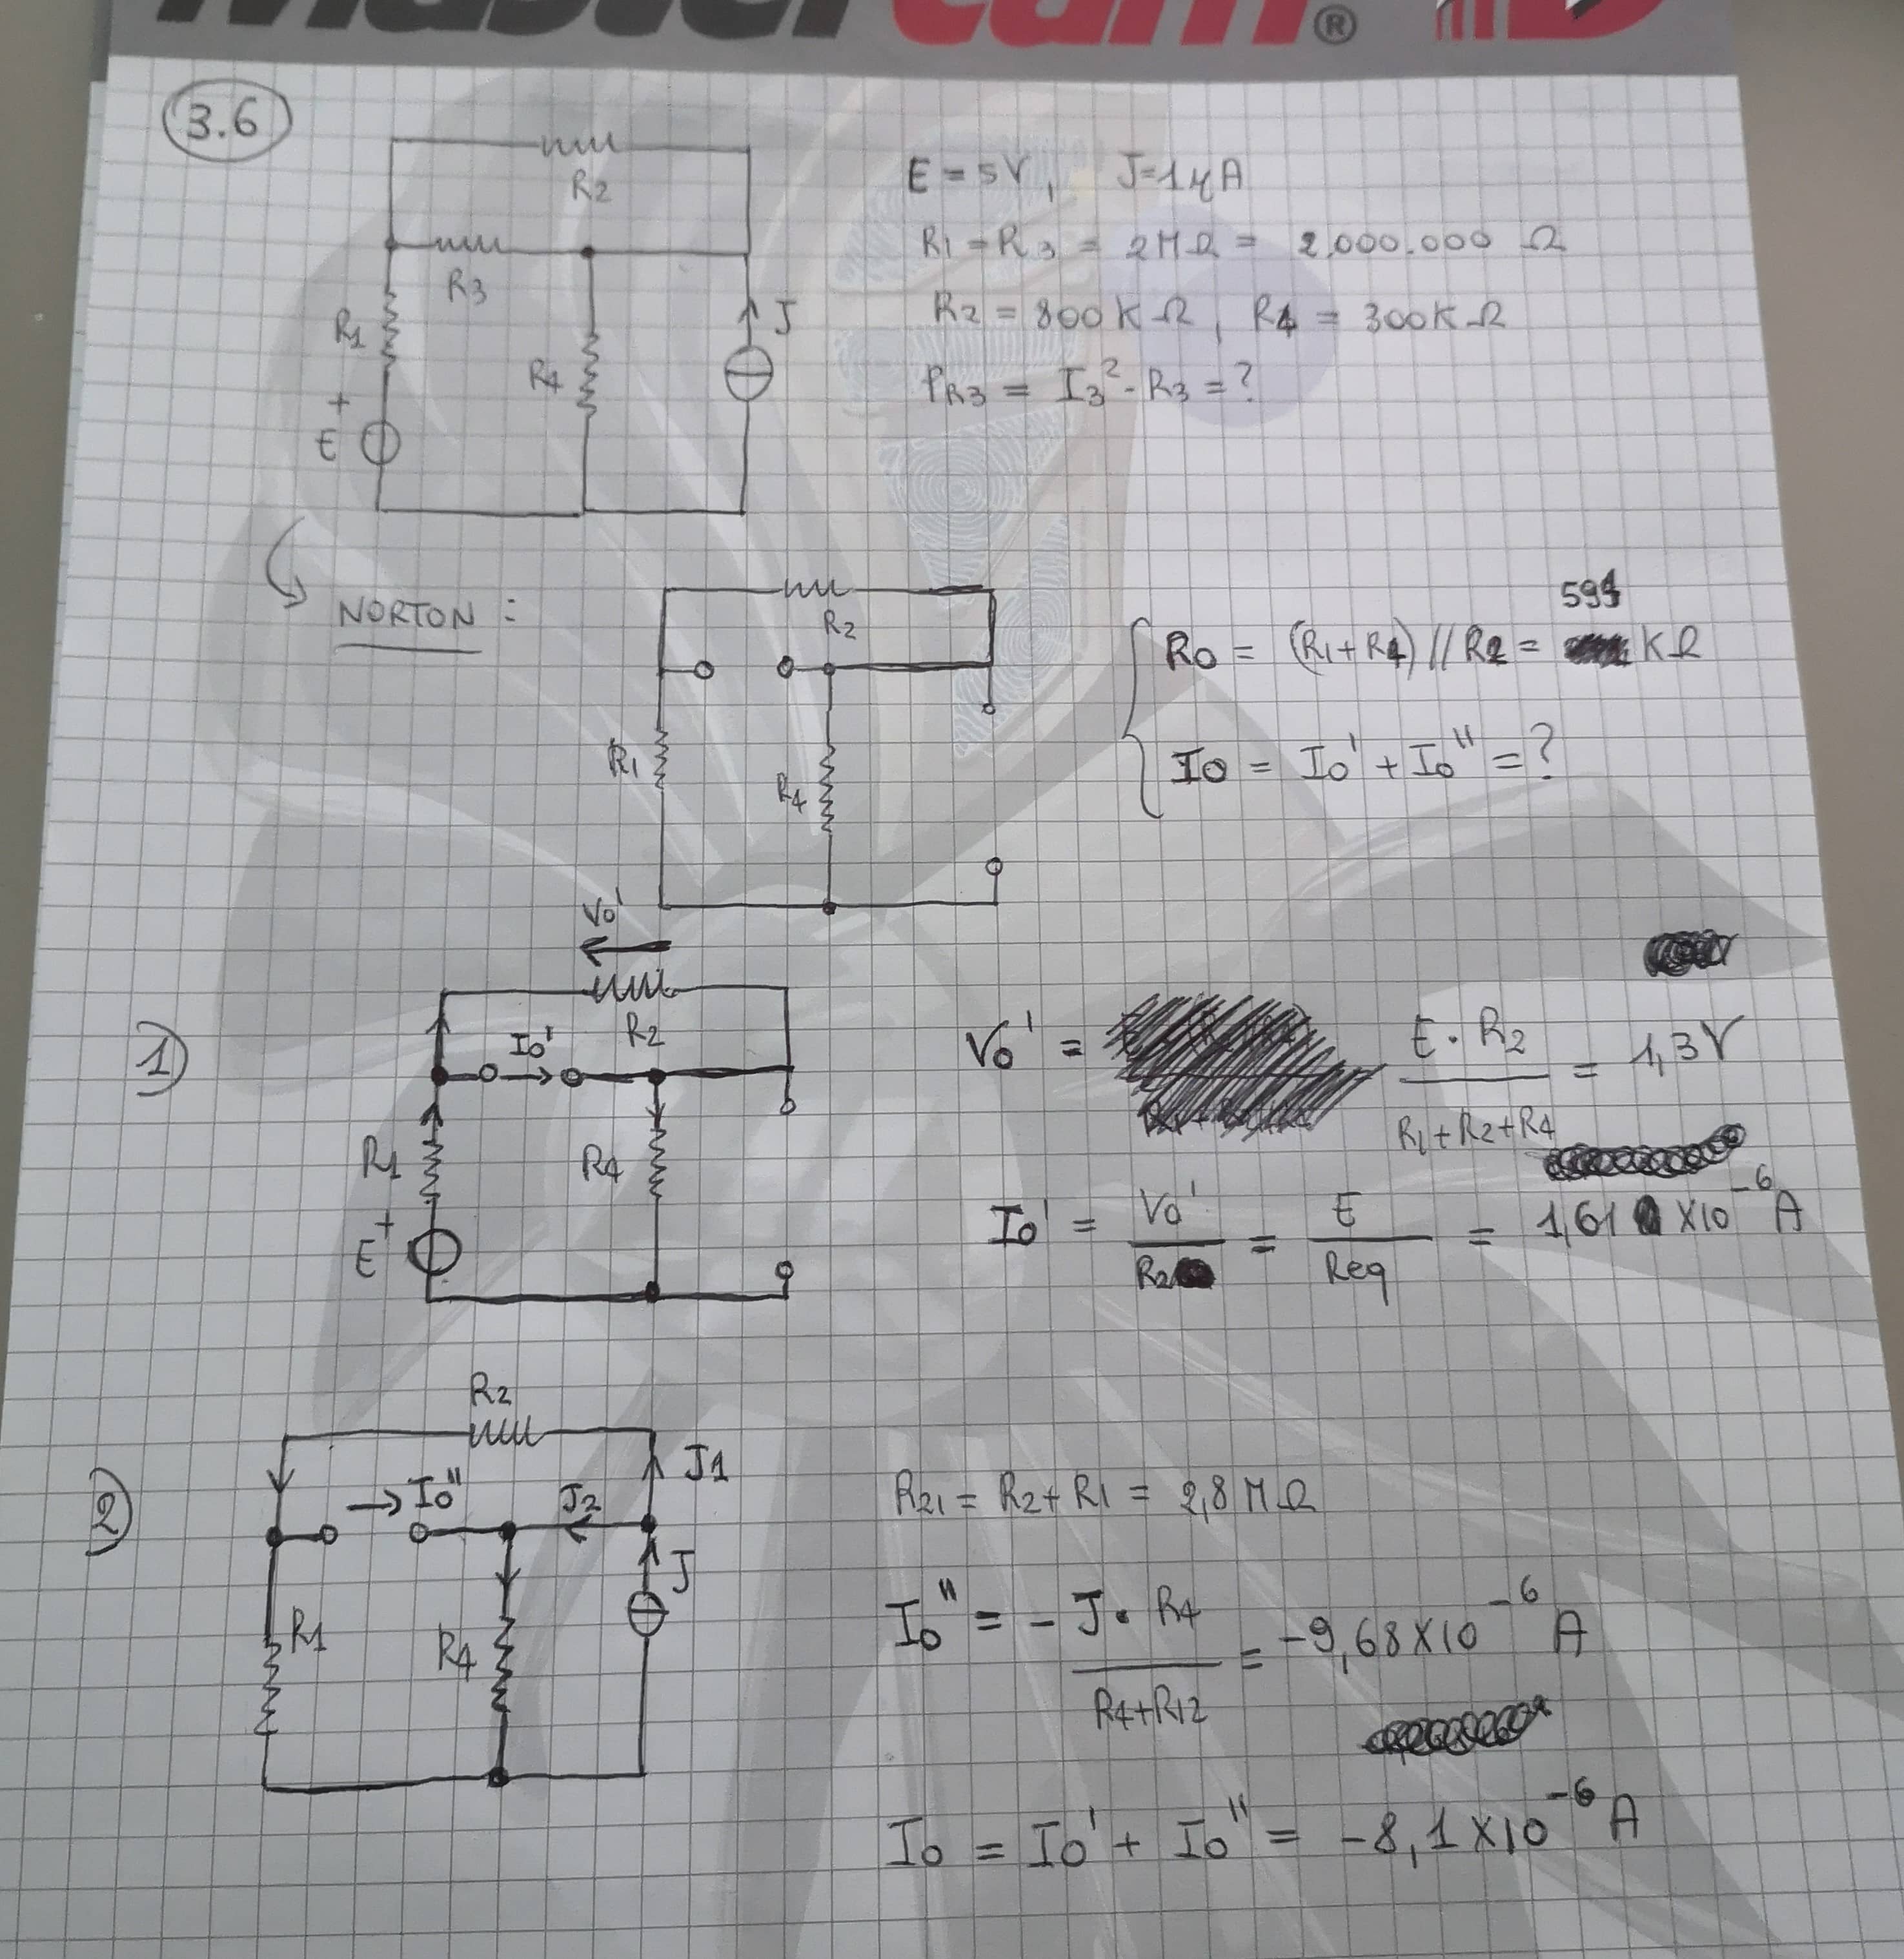 Mastercam®
3.6
R2
R3
R1
R4
J
+
E
E = 5V, J=1μA
R1 = R3 = 2MΩ = 2.000.000 Ω
R2 = 800KΩ, R4 = 300KΩ
PR3 = I3² · R3 = ?
NORTON:
R2
R1
R4
591
R0 = (R1+R4) // R2 = KΩ
I0 = I0' + I0'' = ?
1)
V0'
R2
I0'
R1
R4
+
E
V0' = E · R2 / R1+R2+R4 = 1,3V
I0' = V0' / R2 = E / Req = 1,61 x10⁻⁶ A
2)
R2
J1
I0''
J2
J
R1
R4
R21 = R2 + R1 = 2,8 MΩ
I0'' = - J · R4 / R4+R12 = -9,68x10⁻⁶ A
I0 = I0' + I0'' = -8,1x10⁻⁶ A